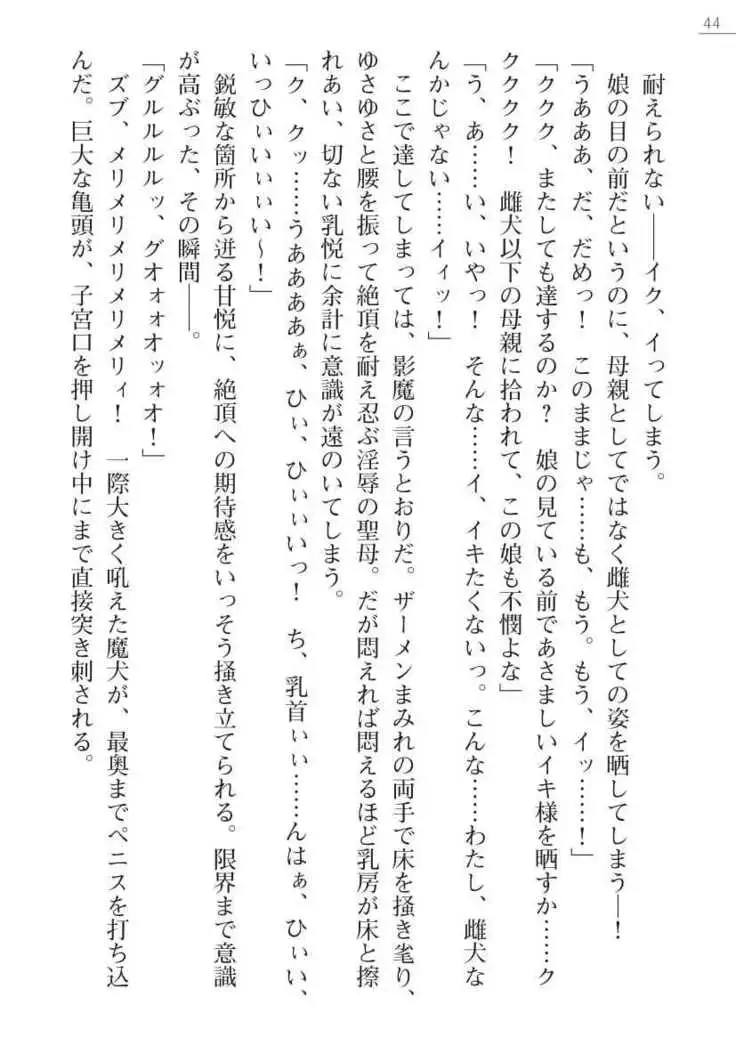 44
耐えられない――イク、イってしまう。
娘の目の前だというのに、母親としてではなく雌犬としての姿を晒してしまう―！
「うあああ、だ、だめっ！　このままじゃ……も、もう。もう、イッ……！」
「ククク、またしても達するのか？　娘の見ている前であさましいイキ様を晒すか……ク
クククク！　雌犬以下の母親に拾われて、この娘も不憫よな」
「う、あ……い、いやっ！　そんな……イ、イキたくないっ。こんな……わたし、雌犬な
んかじゃない……イィッ！」
ここで達してしまっては、影魔の言うとおりだ。ザーメンまみれの両手で床を掻き毟り、
ゆさゆさと腰を振って絶頂を耐え忍ぶ淫辱の聖母。だが悶えれば悶えるほど乳房が床と擦
れあい、切ない乳悦に余計に意識が遠のいてしまう。
「ク、クッ……うああああぁ、ひぃ、ひぃぃいっ！　ち、乳首ぃぃ……んはぁ、ひぃい、
いっひぃいぃぃい～！」
鋭敏な箇所から迸る甘悦に、絶頂への期待感をいっそう掻き立てられる。限界まで意識
が高ぶった、その瞬間――。
「グルルルルッ、グオォォオッォオ！」
ズブ、メリメリメリメリメリィ！　一際大きく吼えた魔犬が、最奥までペニスを打ち込
んだ。巨大な亀頭が、子宮口を押し開け中にまで直接突き刺される。